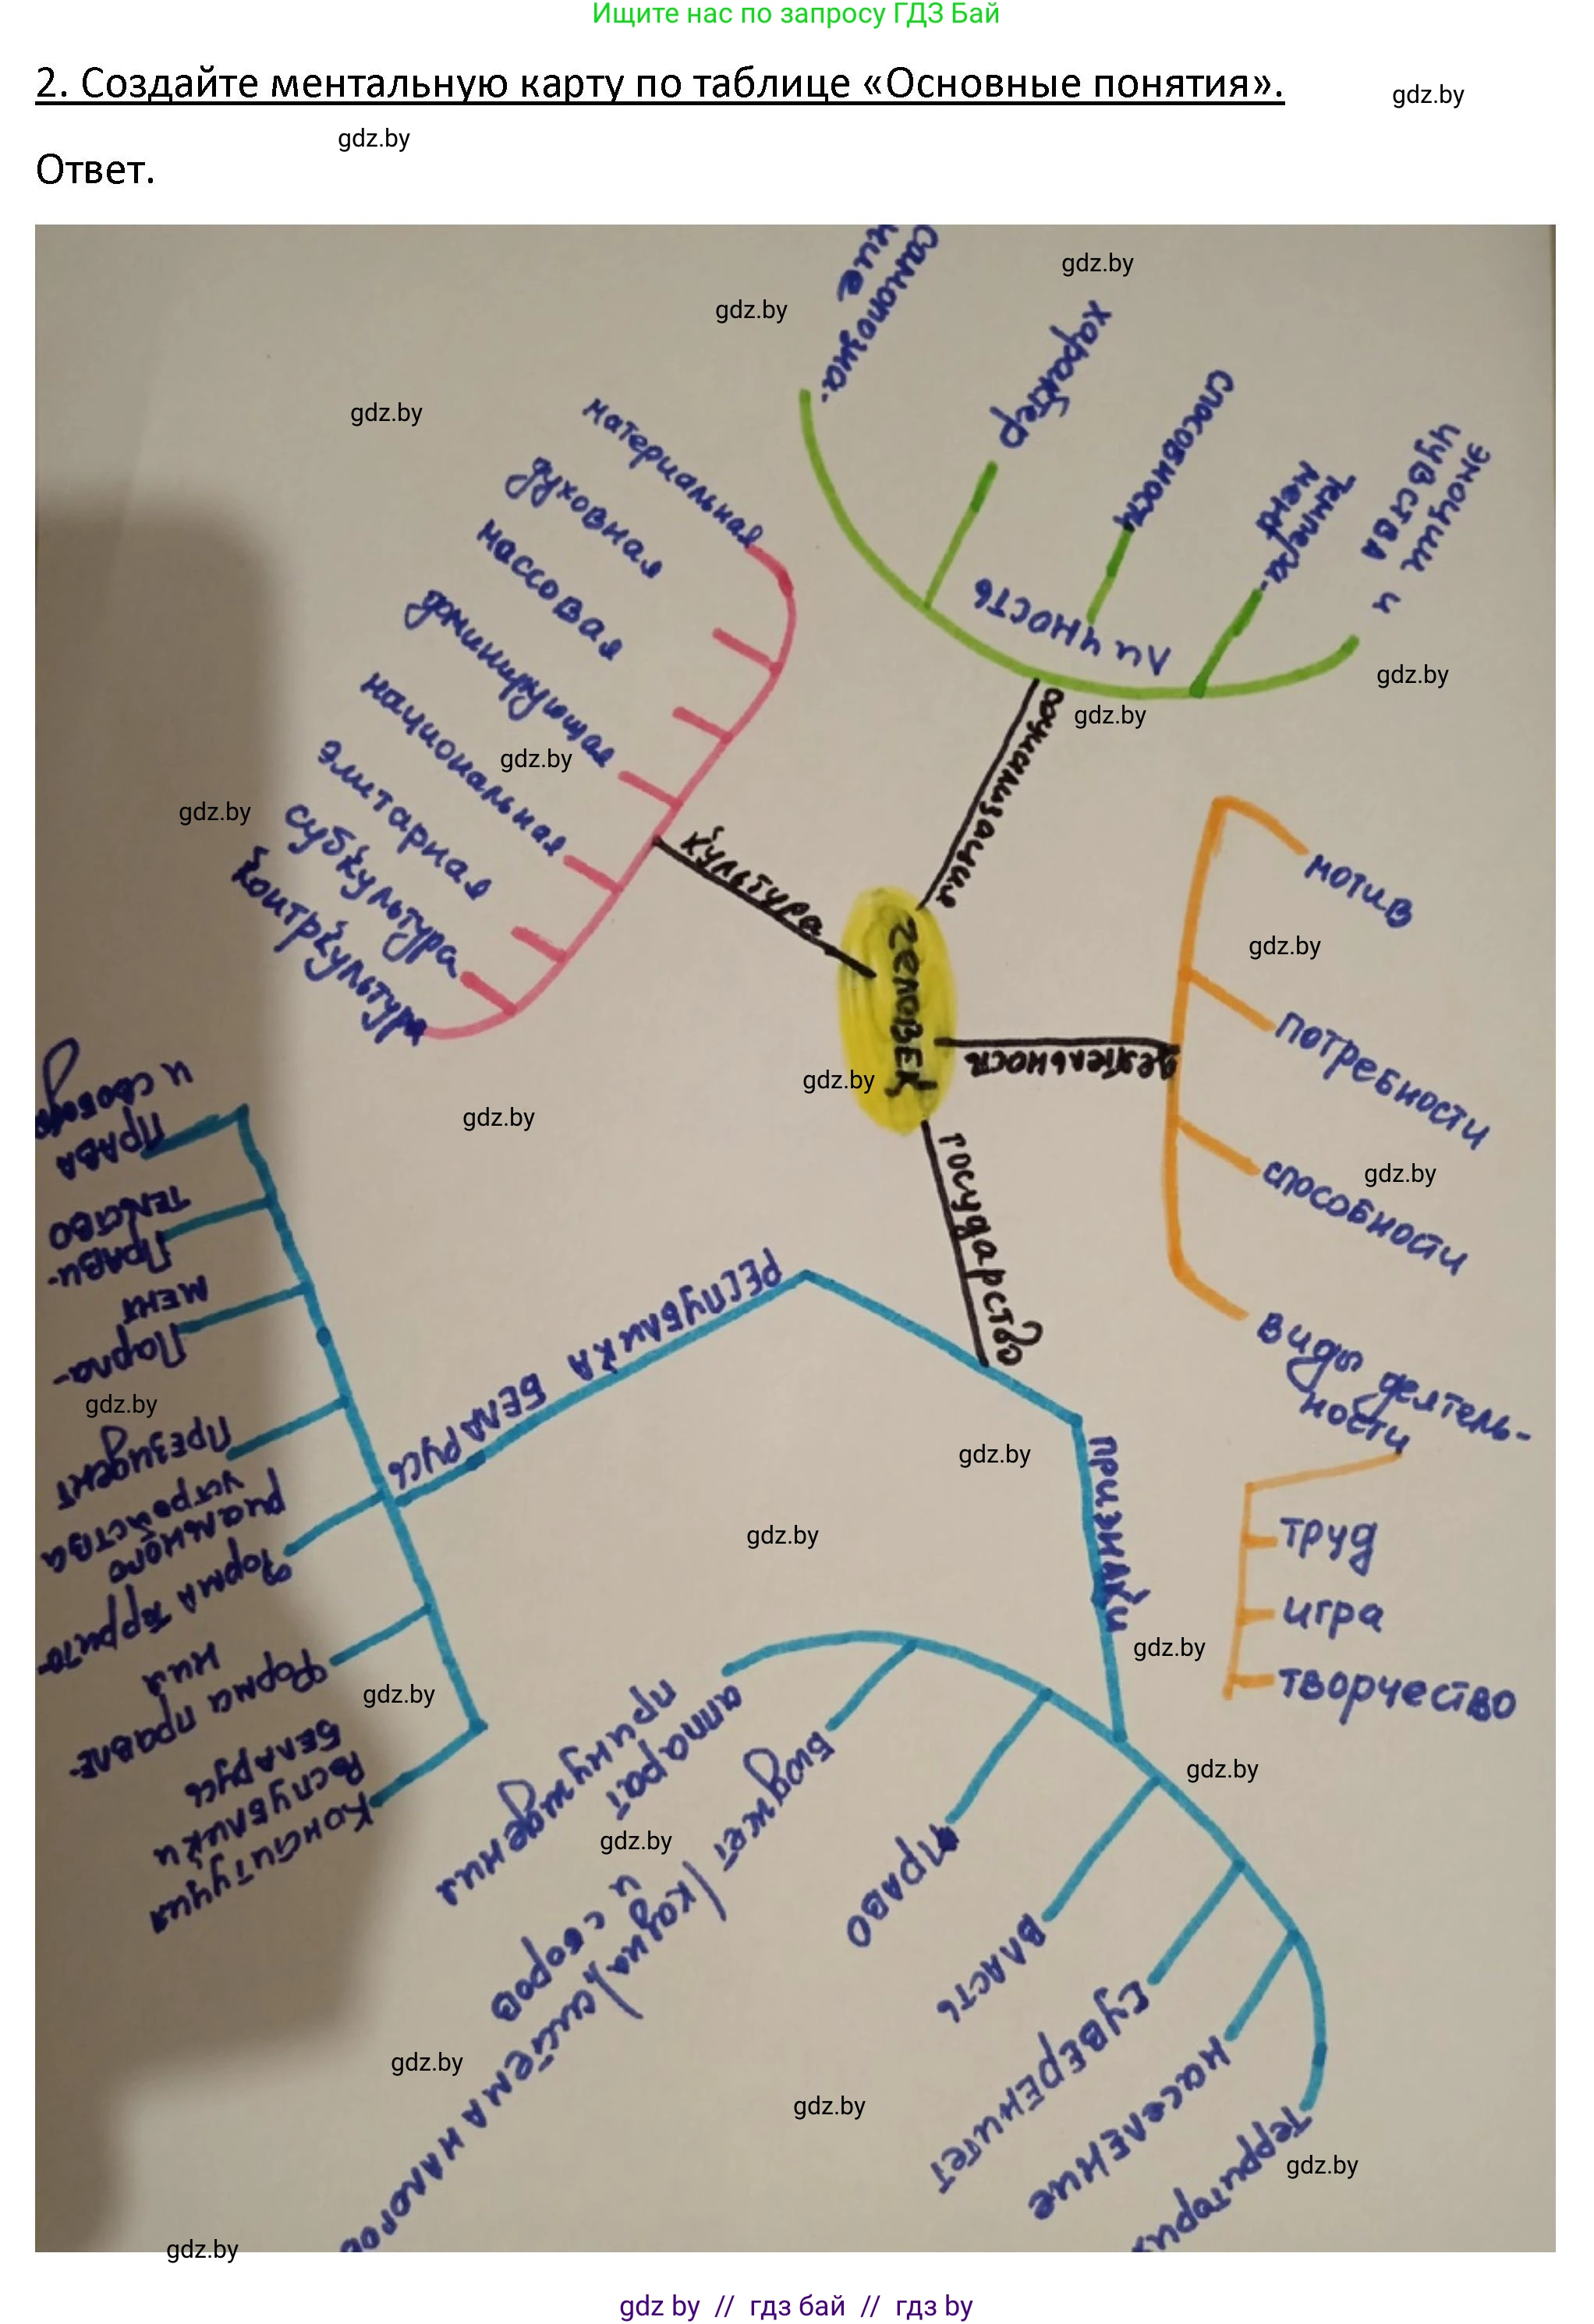 Ищите нас по запросу ГДЗ Бай
2. Создайте ментальную карту по таблице «Основные понятия».
gdz.by
gdz.by
Ответ.
самопозна-
ние
gdz.by
gdz.by
характер
способности
темпера-
мент
эмоции и
чувства
gdz.by
материальная
духовная
массовая
доминирующая
национальная
элитарная
субкультура
контркультура
личность
gdz.by
gdz.by
gdz.by
gdz.by
социализация
культура
человек
мотив
gdz.by
потребности
деятельность
gdz.by
gdz.by
способности
gdz.by
виды деятель-
ности
труд
игра
творчество
государство
РЕСПУБЛИКА БЕЛАРУСЬ
Права
и свободы
Прави-
тельство
Парла-
мент
gdz.by
Президент
Форма террито-
риального
устройства
Форма правле-
ния
Конституция
Республики
Беларусь
gdz.by
gdz.by
признаки
gdz.by
gdz.by
gdz.by
аппарат
принуждения
gdz.by
бюджет (казна) система налогов
и сборов
право
власть
суверенитет
население
территория
gdz.by
gdz.by
gdz.by
gdz.by
gdz by // гдз бай // гдз by